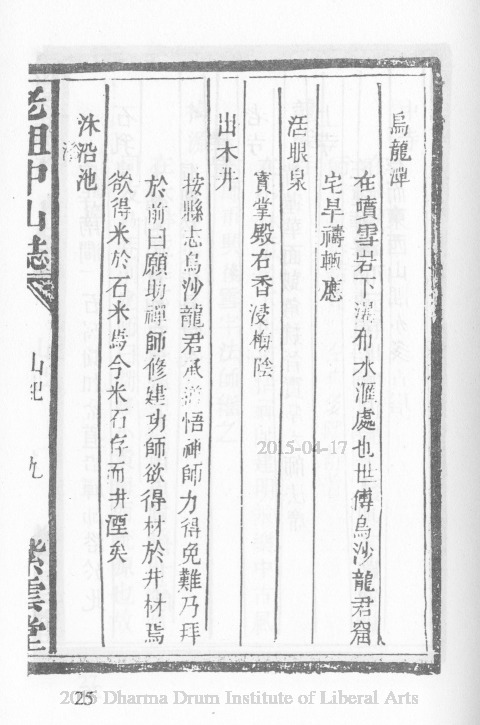 烏龍潭
在噴雪岩下瀑布水滙處也世傳烏沙龍君窟
宅旱禱輒應
活眼泉
寶掌殿右香浸梅陰
出木井
按縣志烏沙龍君承道悟禅師力得免難乃拜
於前曰願助禪師修建功師欲得材於井材焉
欲得米於石米焉今米石存而井湮矣
沐浴池
老祖中山誌
山圯
九
紫雲堂
2015-04-17
25
2015 Dharma Drum Institute of Liberal Arts